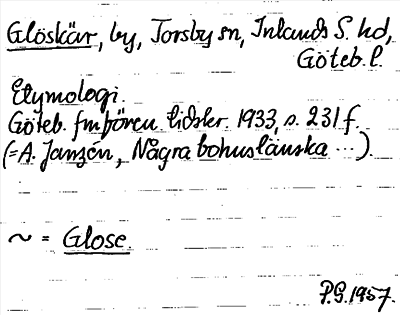 Glöskär, by, Torsby sn, Inlands S. hd,
Göteb. l.
Etymologi.
Göteb. fmfören. tidskr. 1933, s. 231 f.
(= A. Janzén, Några bohuslänska ...).
~ = Glose.
P.G. 1957.